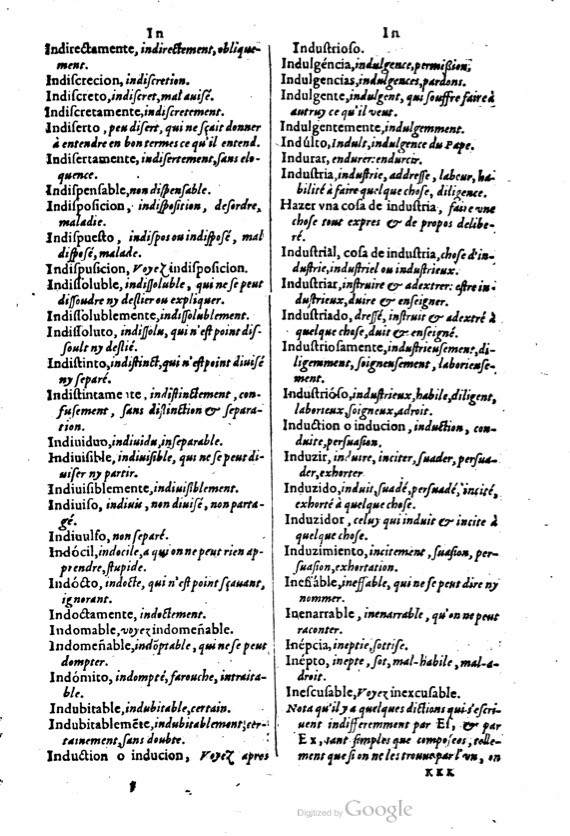 In
Indirectamente, indirectement, oblique-
ment.
Indiſcrecion, indiſcretion.
Indiſcreto, indiſcret, mal auiſé.
Indiſcretamente, indiſcretement.
Indiſerto, peu diſert, qui ne ſçait donner
à entendre en bon termes ce qu'il entend.
Indiſertamente, indiſertement, ſans elo-
quence.
Indiſpenſable, non diſpenſable.
Indiſpoſicion, indiſpoſition, deſordre,
maladie.
Indiſpueſto, indiſpos ou indiſpoſé, mal
diſpoſé, malade.
Indiſpuſicion, Voyez indiſpoſicion.
Indiſſoluble, indiſſoluble, qui ne ſe peut
diſſoudre ny deſlier ou expliquer.
Indiſſolublemente, indiſſolublement.
Indiſſoluto, indiſſolu, qui n'eſt point diſ-
ſoult ny deſlié.
Indiſtinto, indiſtinct, qui n'eſt point diuiſé
ny ſeparé.
Indiſtintamente, indiſtinctement, con-
fuſement, ſans diſtinction & ſepara-
tion.
Indiuiduo, indiuidu, inſeparable.
Indiuiſible, indiuiſible, qui ne ſe peut di-
uiſer ny partir.
Indiuiſiblemente, indiuiſiblement.
Indiuiſo, indiuis, non diuiſé, non parta-
gé.
Indiuulſo, non ſeparé.
Indócil, indocile, a qui on ne peut rien ap-
prendre, ſtupide.
Indócto, indocte, qui n'eſt point ſçauant,
ignorant.
Indoctamente, indoctement.
Indomable, voyez indomeñable.
Indomeñable, indõptable, qui ne ſe peut
dompter.
Indómito, indompté, farouche, intraita-
ble.
Indubitable, indubitable, certain.
Indubitablemẽte, indubitablement, cer-
tainement, ſans doubte.
Induction o inducion, Voyez apres
In
Induſtrioſo.
Indulgéncia, indulgence, permiſſion,
Indulgencias, indulgences, pardons.
Indulgente, indulgent, qui ſouffre faire à
autruy ce qu'il veut.
Indulgentemente, indulgemment.
Indúlto, Indult, indulgence du Pape.
Indurar, endurer: endurcir.
Induſtria, induſtrie, addreſſe, labeur, ha-
bilité à faire quelque choſe, diligence.
Hazer vna coſa de induſtria, faire vne
choſe tout expres & de propos delibe-
ré.
Induſtrial, coſa de induſtria, choſe d'in-
duſtrie, induſtriel ou induſtrieux.
Induſtriar, inſtruire & adextrer: eſtre in-
duſtrieux, duire & enſeigner.
Induſtriado, dreſſé, inſtruit & adextré à
quelque choſe, duit & enſeigné.
Induſtrioſamente, induſtrieuſement, di-
ligemment, ſoigneuſement, laborieuſe-
ment.
Induſtrióſo, induſtrieux, habile, diligent,
laborieux, ſoigneux, adroit.
Induction o inducion, induction, con-
duite, perſuaſion.
Induzir, induire, inciter, ſuader, perſua-
der, exhorter
Induzido, induit, ſuadé, perſuadé, incité,
exhorté à quelque choſe.
Induzidor, celuy qui induit & incite à
quelque choſe.
Induzimiento, incitement, ſuaſion, per-
ſuaſion, exhortation.
Ineffable, ineffable, qui ne ſe peut dire ny
nommer.
Inenarrable, inenarrable, qu'on ne peut
raconter.
Inépcia, ineptie, ſottiſe.
Inépto, inepte, ſot, mal-habile, mal-a-
droit.
Ineſcuſable, Voyez inexcuſable.
Nota qu'il y a quelques dictions qui s'eſcri-
uent indifferemment par Eſ, & par
Ex, tant ſimples que compoſees, telle-
ment que ſi on ne les trouue par l'vn, on
XXX
Digitized by Google